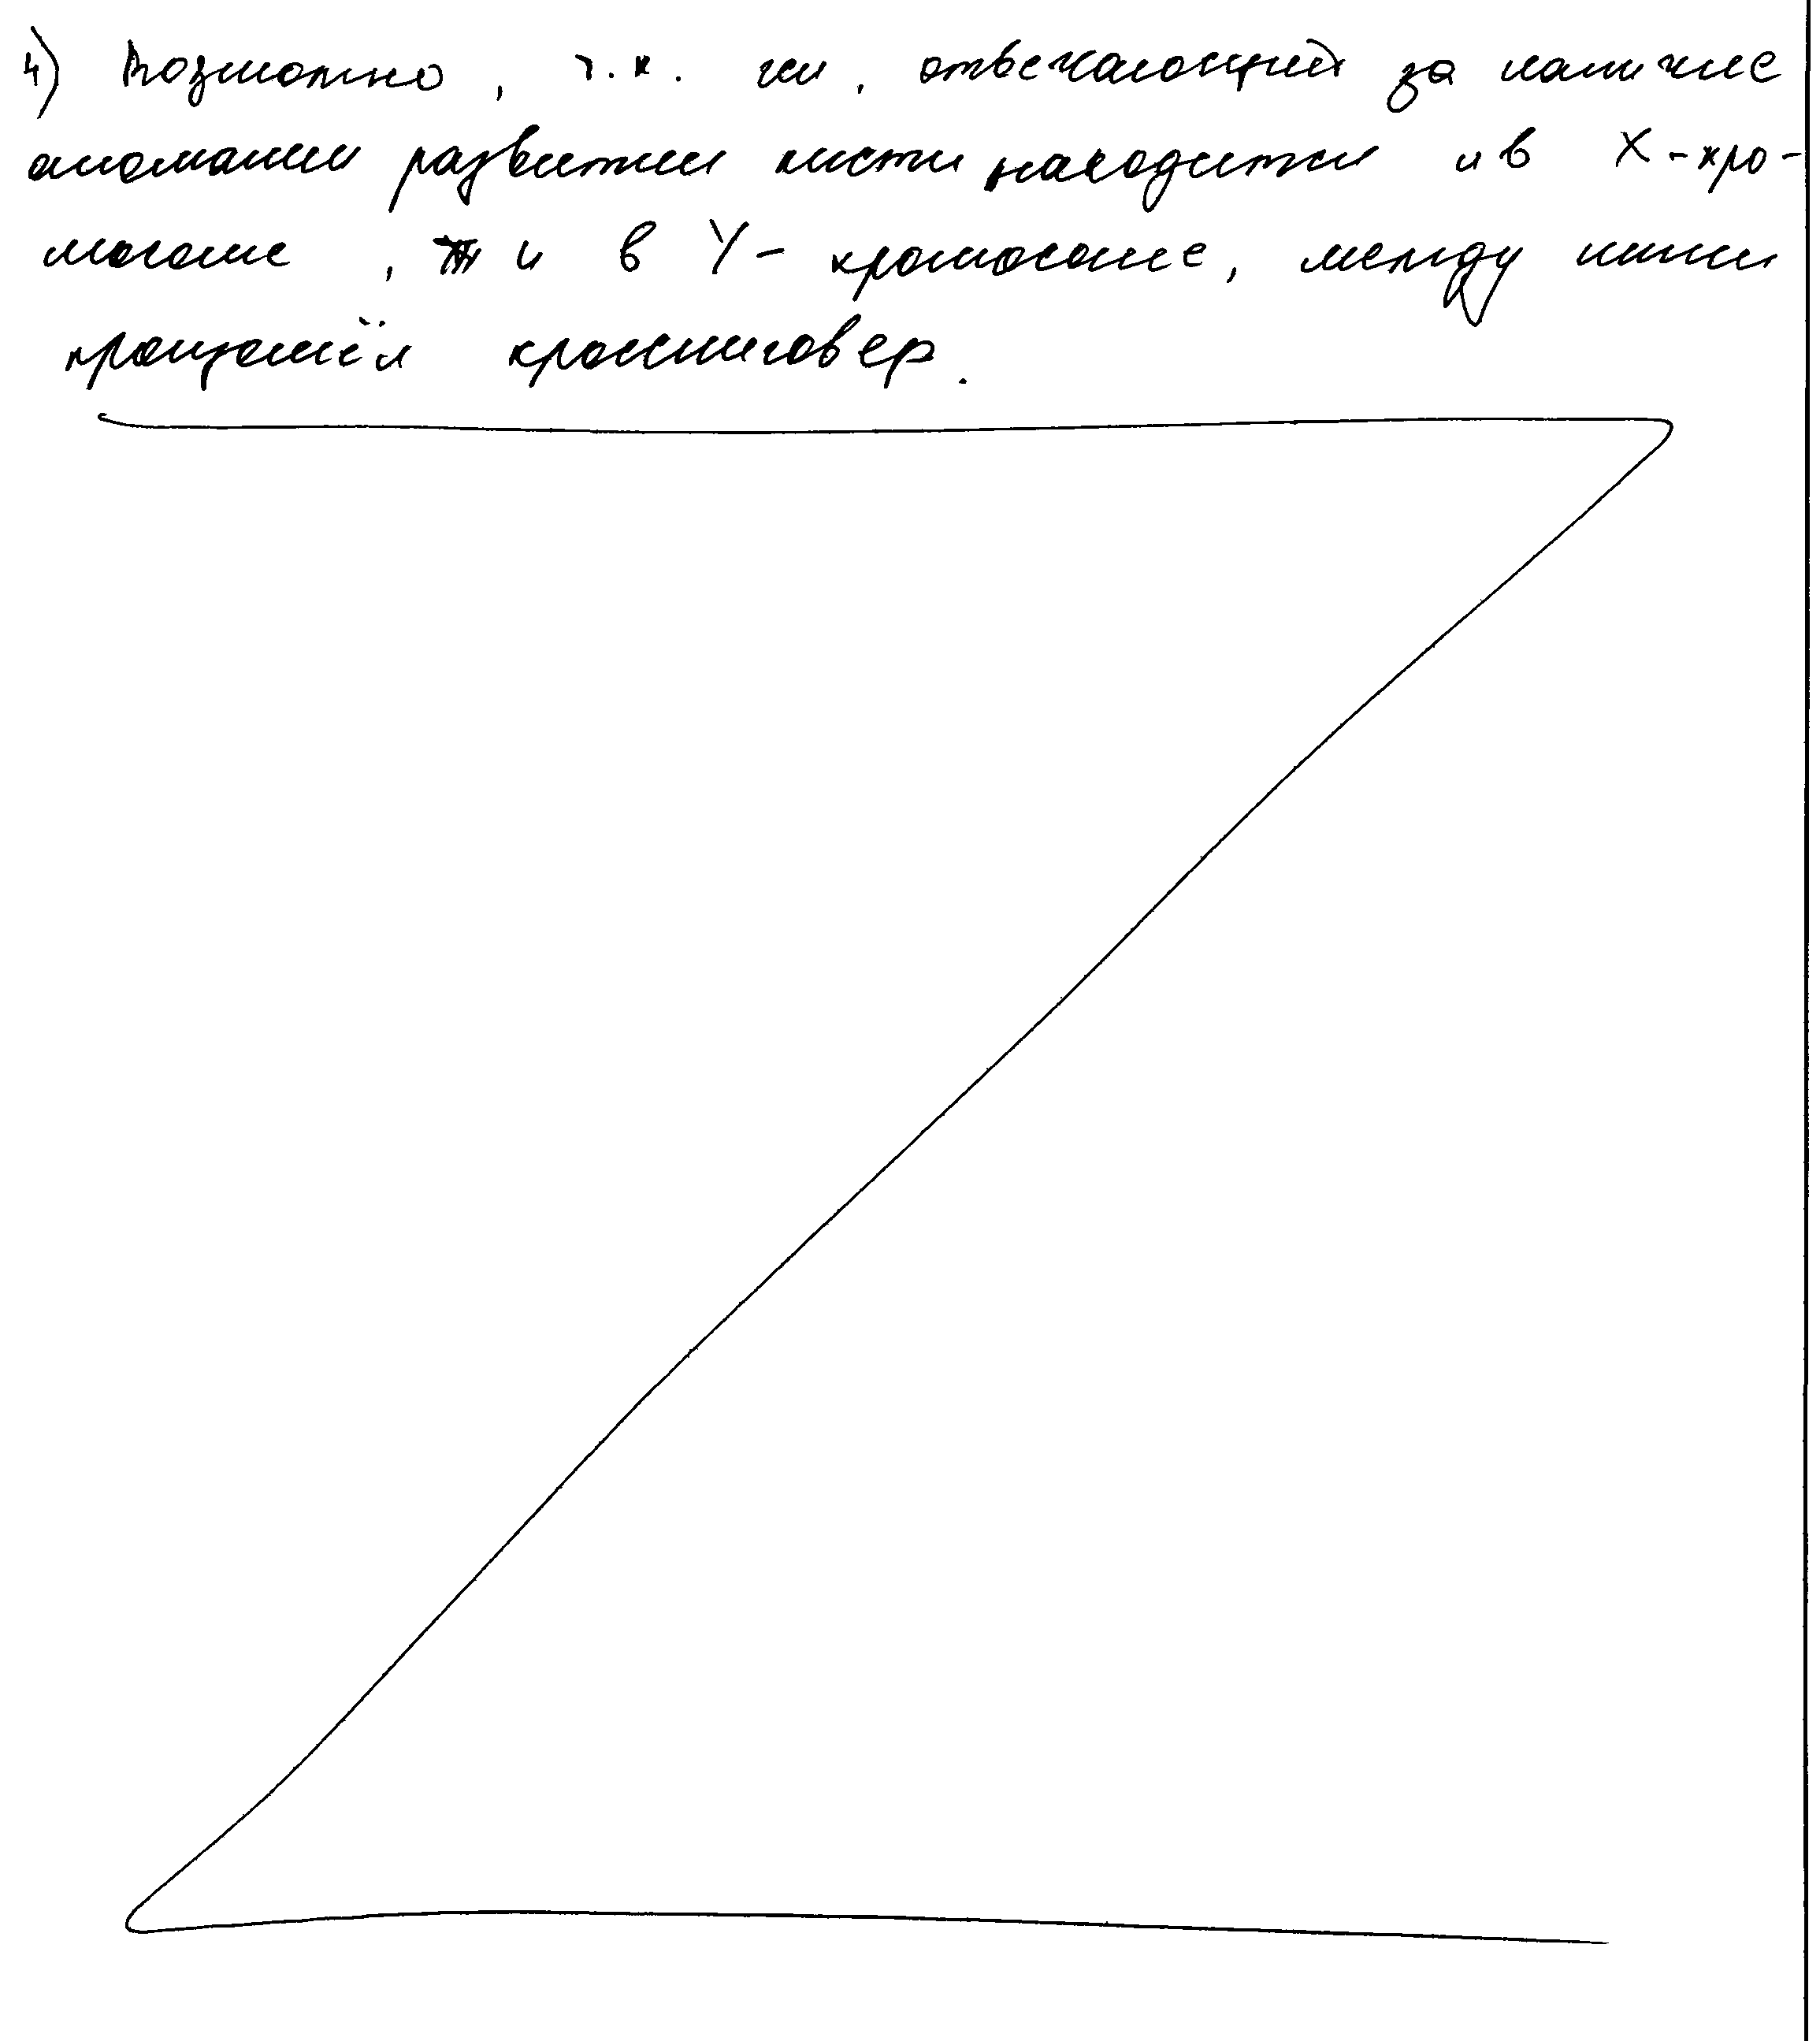 4) Возможно, т.к. ген, отвечающий за наличие
аномалии развития кисти находится и в X-хро-
мосоме, и в Y-хромосоме, между ними
произошёл кроссинговер.